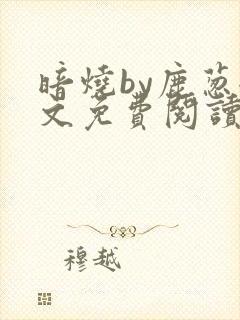 暗燒by鹿葱
文免費閱讀
穆越